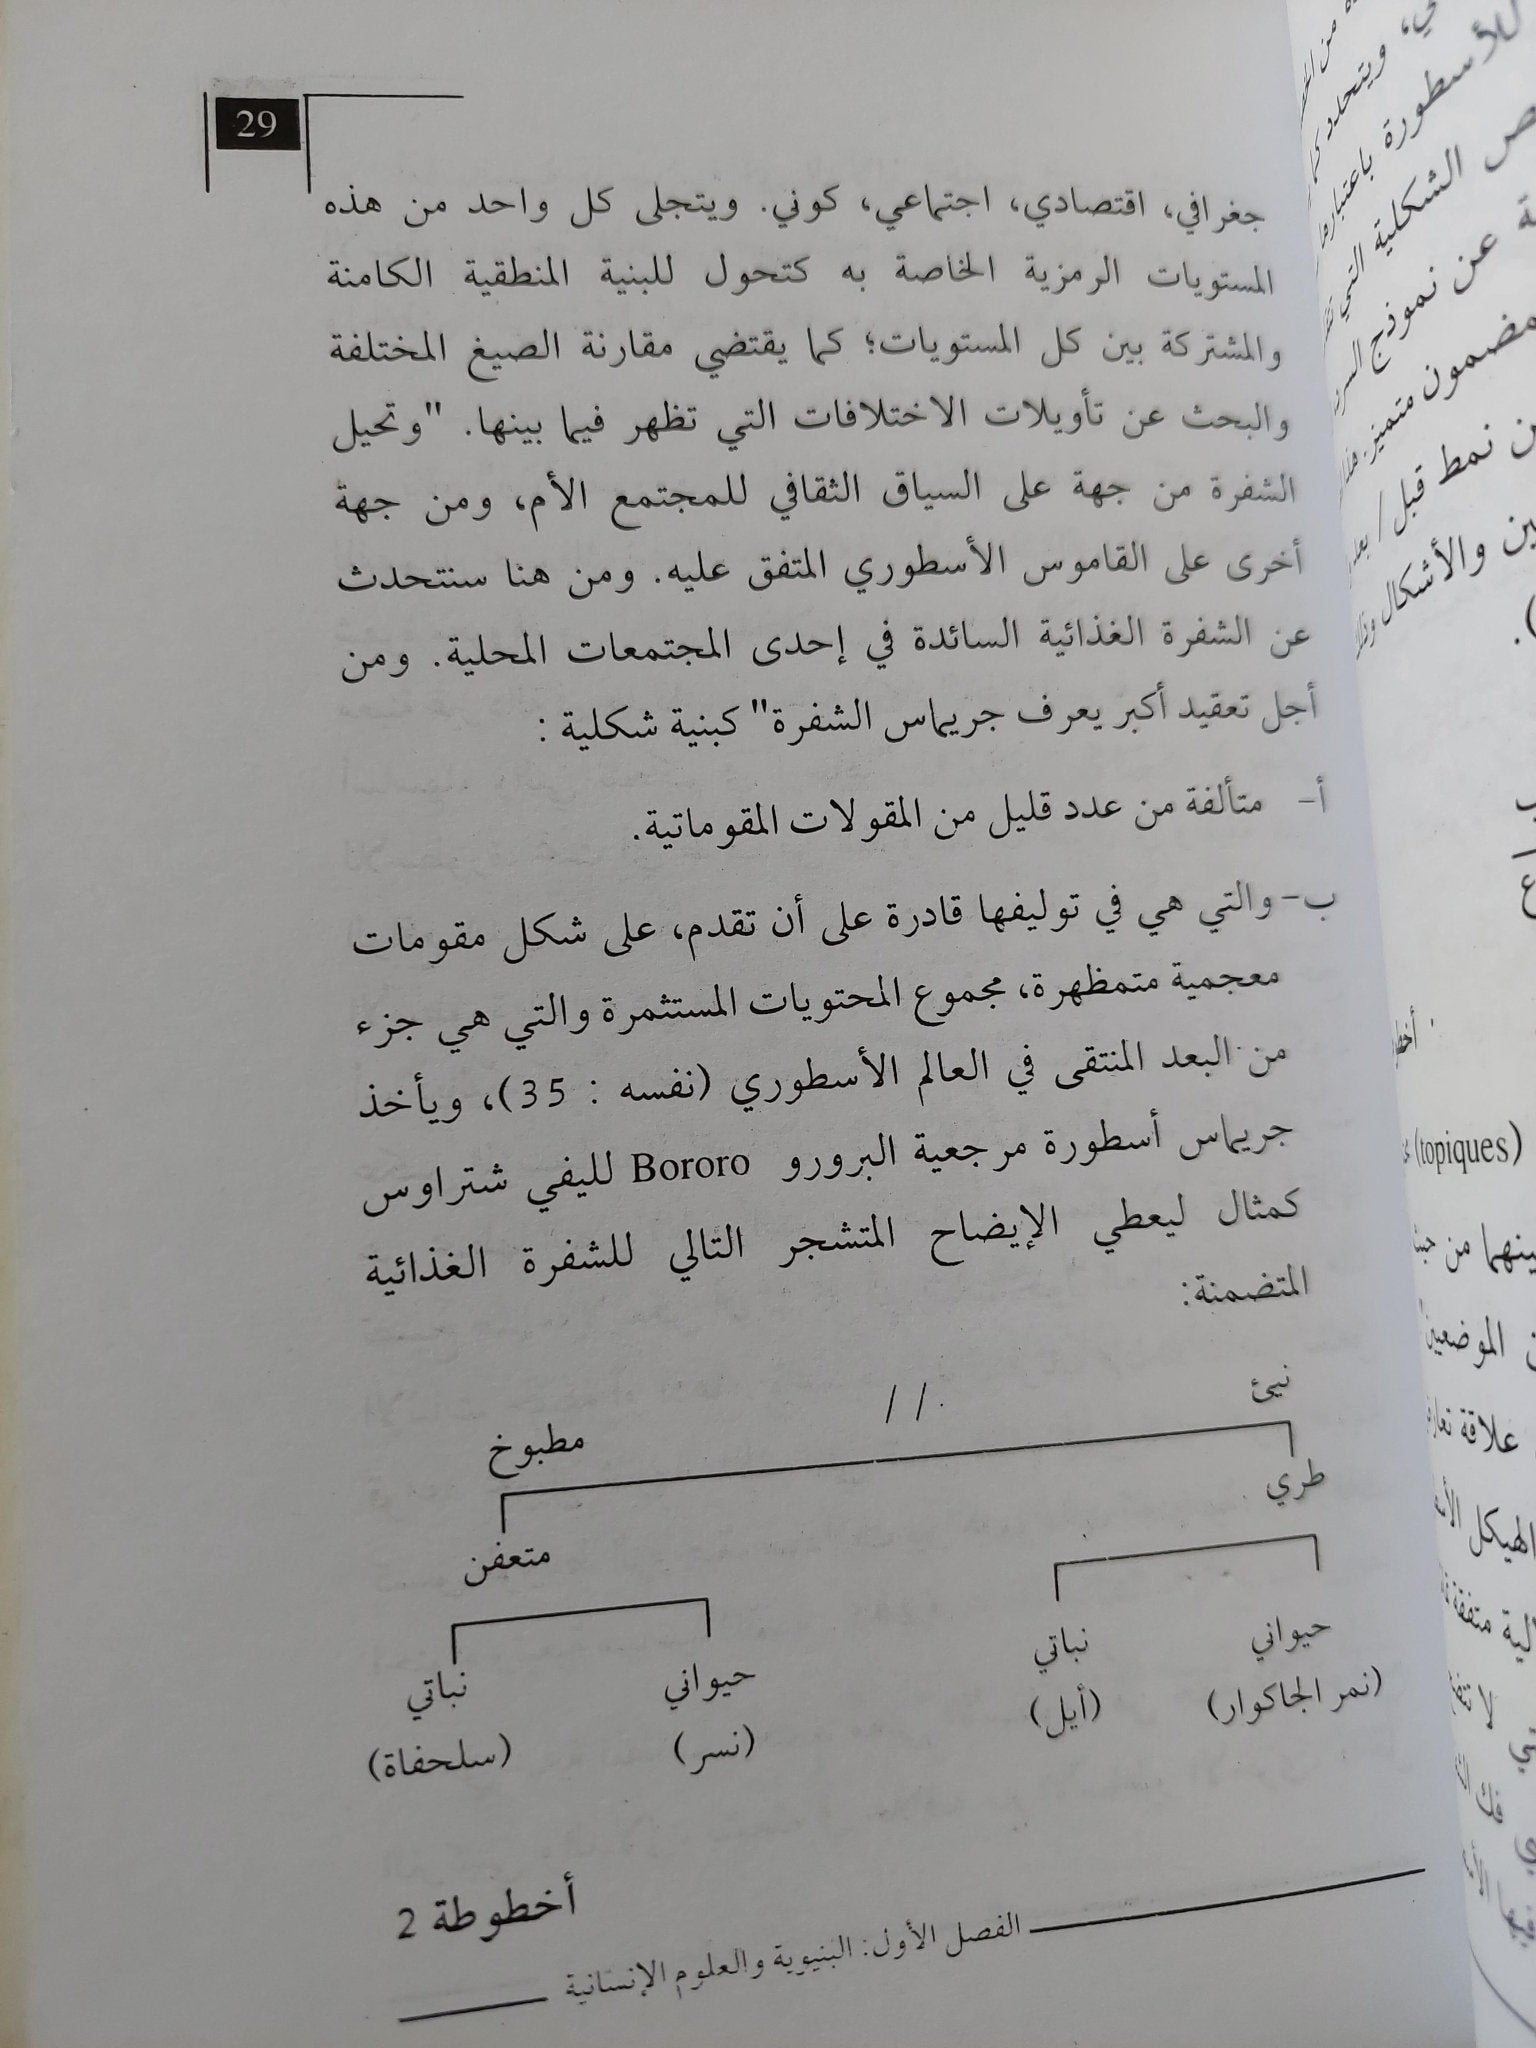 29
جغرافي، اقتصادي، اجتماعي، كوني. ويتجلى كل واحد من هذه
المستويات الرمزية الخاصة به كتحول للبنية المنطقية الكامنة
والمشتركة بين كل المستويات؛ كما يقتضي مقارنة الصيغ المختلفة
والبحث عن تأويلات الاختلافات التي تظهر فيما بينها. "وتحيل
الشفرة من جهة على السياق الثقافي للمجتمع الأم، ومن جهة
أخرى على القاموس الأسطوري المتفق عليه. ومن هنا سنتحدث
عن الشفرة الغذائية السائدة في إحدى المجتمعات المحلية. ومن
أجل تعقيد أكبر يعرف جريماس الشفرة" كبنية شكلية :
أ- متألفة من عدد قليل من المقولات المقوماتية.
ب- والتي هي في توليفها قادرة على أن تقدم، على شكل مقومات
معجمية متمظهرة، مجموع المحتويات المستثمرة والتي هي جزء
من البعد المنتقى في العالم الأسطوري (نفسه : 35)، ويأخذ
جريماس أسطورة مرجعية البرورو Bororo لليفي شتراوس
كمثال ليعطي الإيضاح المتشجر التالي للشفرة الغذائية
المتضمنة:
نيئ // مطبوخ
طري متعفن
حيواني نباتي حيواني نباتي
(نمر الجاكوار) (أيل) (نسر) (سلحفاة)
أخطوطة 2
الفصل الأول: البنيوية والعلوم الإنسانية
للأسطورة باعتبارها
ص الشكلية التي
ة عن نموذج
مضمون متميز.
ن نمط قبل / بعد
ين والأشكال
(topiques)
بينهما من
ن الموضعين
علاقة
الهيكل